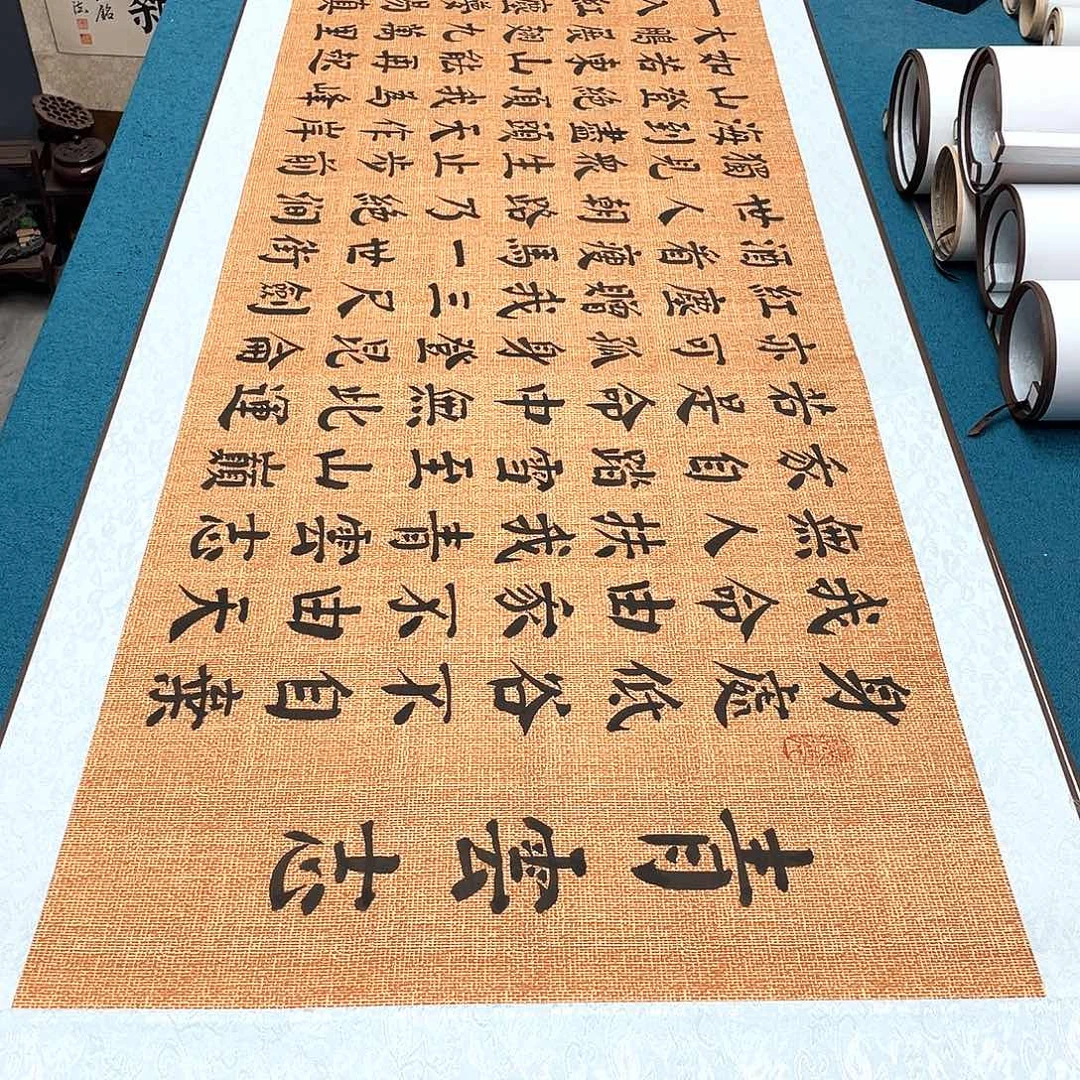 青雲志
身處低谷不自棄
我命由家不由天
無人扶我青雲志
家自踏雪至山巔
若是命中無此運
亦可孤身登昆侖
紅塵贈我三尺劍
酒着瘦馬一世街
世人朝路乃絕徇
獨見眾生止步前
海到盡頭天作岸
山登絕頂我為峰
如若東山能再起
大鵬展翅九萬里
一入紅塵